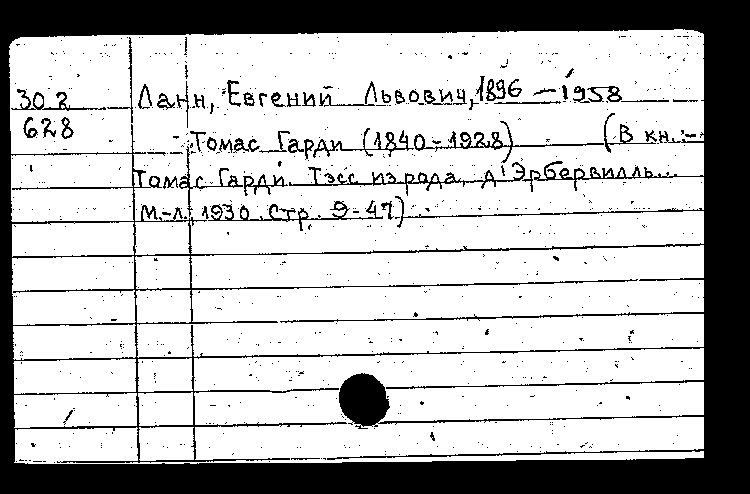 302 Ланн, Евгений Львович, 1896 – 1958
628 - Томас Гарди (1840-1928) (В кн.:-
Томас Гарди. Тэсс из рода д'Эрбервилль...
М.-Л., 1930. Стр. 9-47)